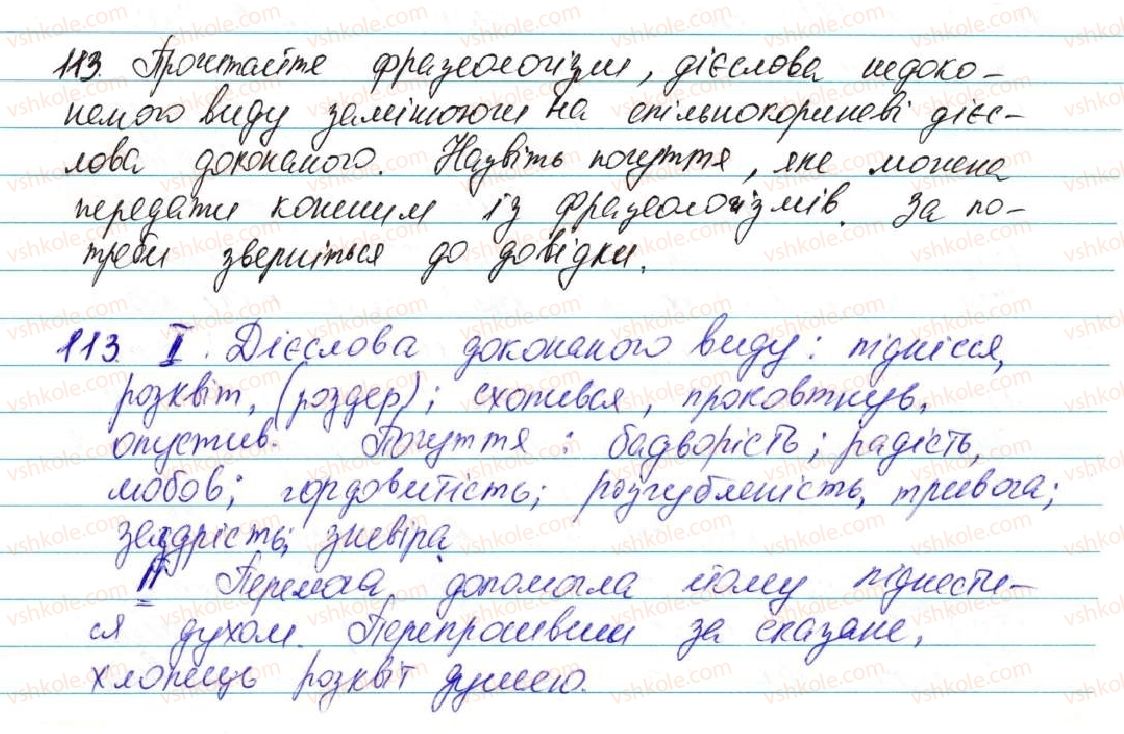 113. Прочитайте фразеологізми, дієслова недоко-
наного виду замінюючи на спільнокореневі дієс-
лова доконаного. Назвіть почуття, яке можна
передати кожним із фразеологізмів. За по-
треби зверніться до довідки.
113 I. Дієслова доконаного виду: піднісся,
розквіт, (роздер); схопився, проковтнув,
опустив. Почуття: бадьорість; радість,
любов; гордовитість; розгубленість, тривога;
заздрість; зневіра.
II Перемога допомогла йому піднести-
ся духом. Перепросивши за сказане,
хлопець розквіт душею.